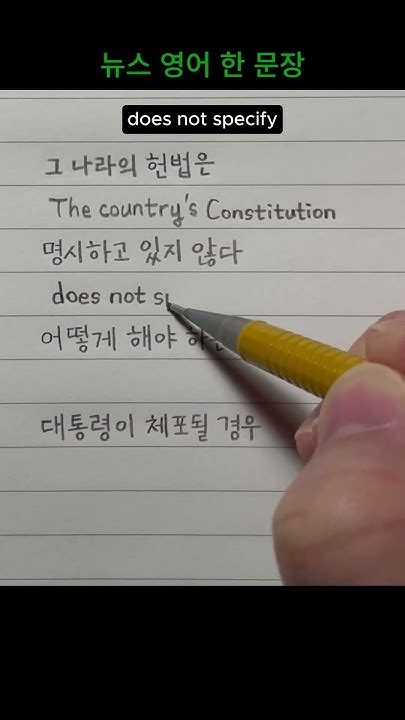 뉴스 영어 한 문장
does not specify
그 나라의 헌법은
The country's Constitution
명시하고 있지 않다
does not
어떻게 해야
대통령이 체포될 경우